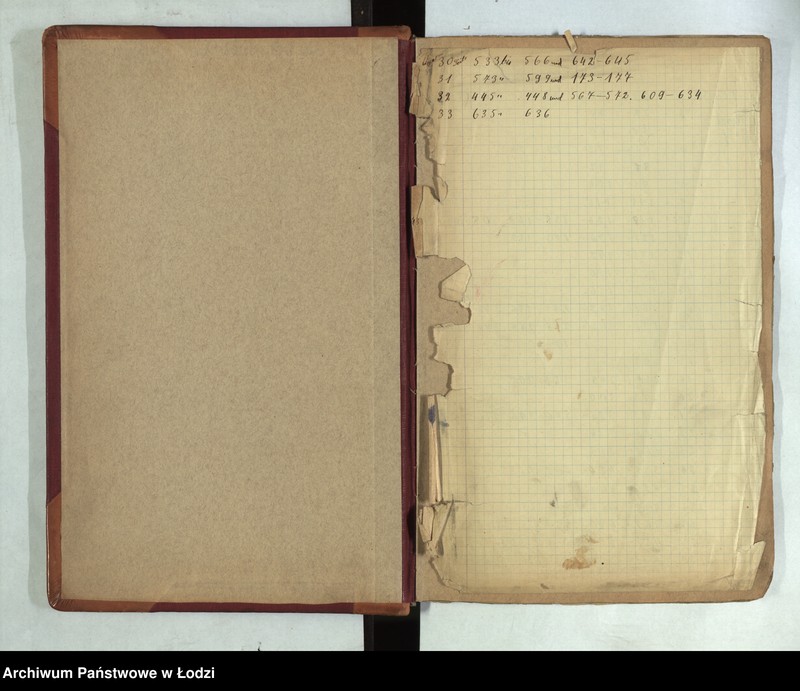 30 533 566 und 642-645
31 573 " 599 und 173-177
32 445 " 448 und 567-572. 609-634
33 635 " 636
Archiwum Państwowe w Łodzi